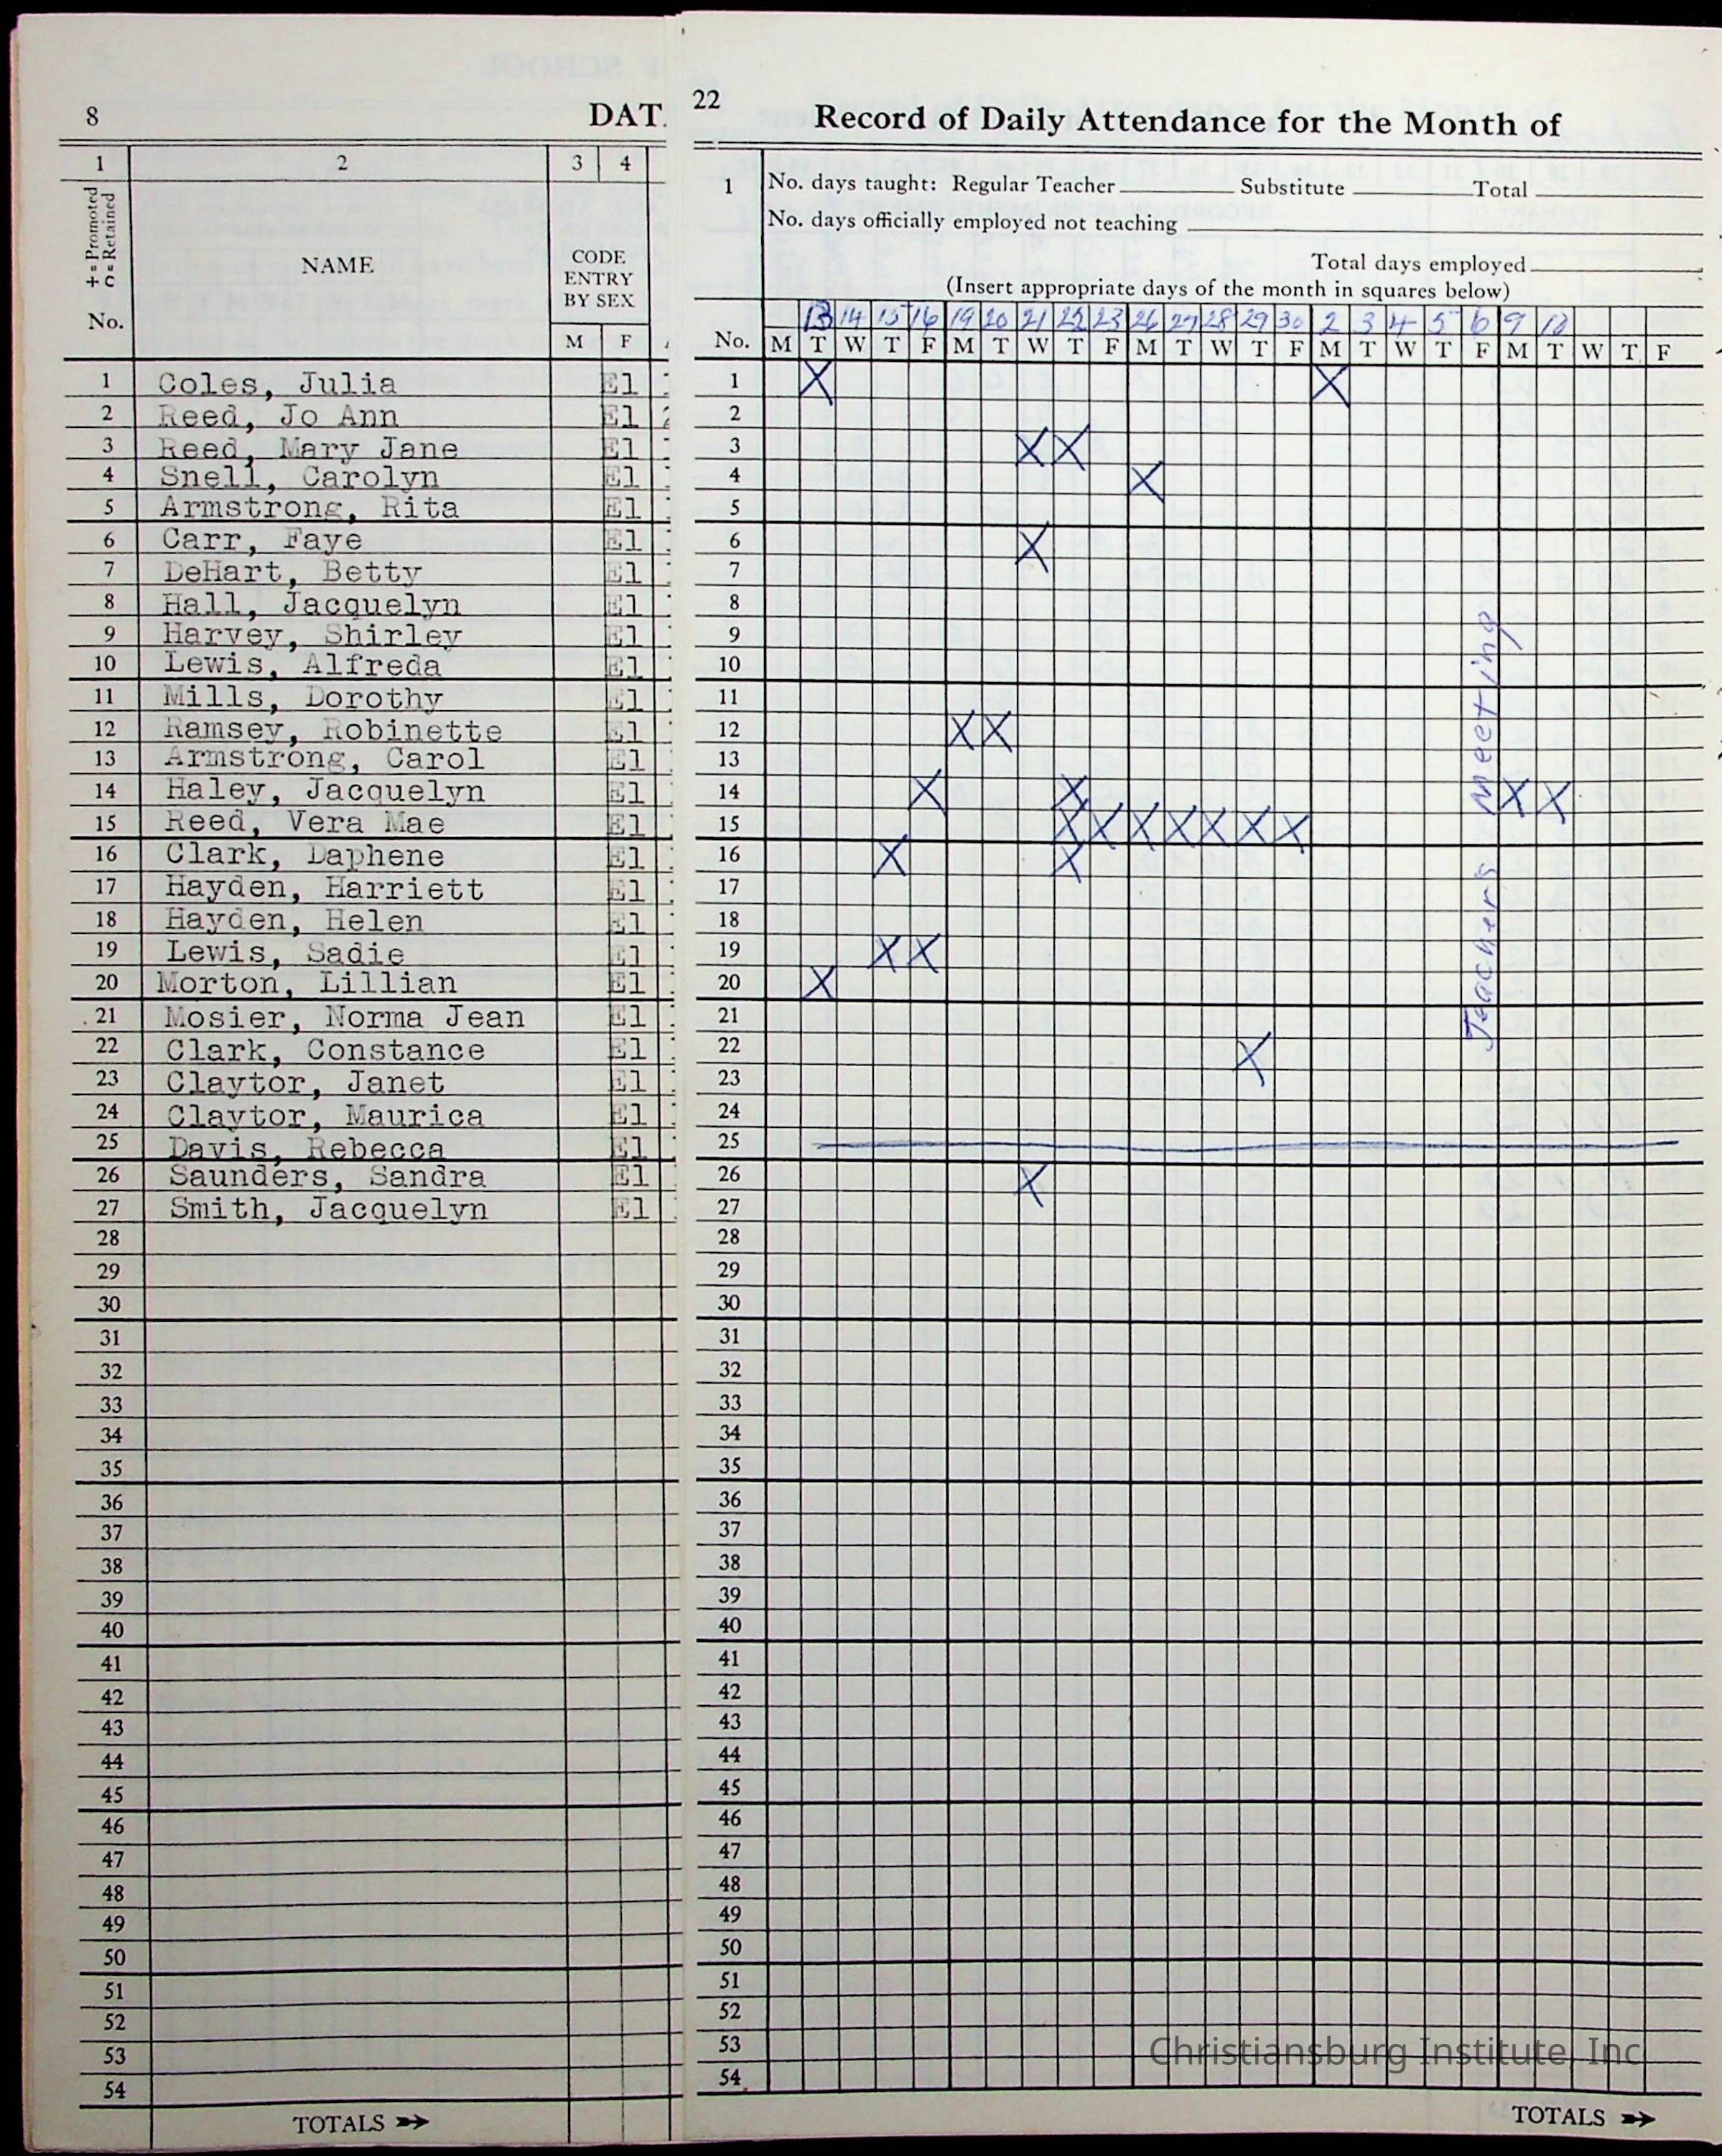 8
DAT
1 2 3 4
+ = Promoted
O = Retained
No.
NAME
CODE
ENTRY
BY SEX
M F
1 Coles, Julia El
2 Reed, Jo Ann El
3 Reed, Mary Jane El
4 Snell, Carolyn El
5 Armstrong, Rita El
6 Carr, Faye El
7 DeHart, Betty El
8 Hall, Jacquelyn El
9 Harvey, Shirley El
10 Lewis, Alfreda El
11 Mills, Dorothy El
12 Ramsey, Robinette El
13 Armstrong, Carol El
14 Haley, Jacquelyn El
15 Reed, Vera Mae El
16 Clark, Daphene El
17 Hayden, Harriett El
18 Hayden, Helen El
19 Lewis, Sadie El
20 Morton, Lillian El
21 Mosier, Norma Jean El
22 Clark, Constance El
23 Claytor, Janet El
24 Claytor, Maurica El
25 Davis, Rebecca El
26 Saunders, Sandra El
27 Smith, Jacquelyn El
28
29
30
31
32
33
34
35
36
37
38
39
40
41
42
43
44
45
46
47
48
49
50
51
52
53
54
TOTALS
22
Record of Daily Attendance for the Month of
1 No. days taught: Regular Teacher Substitute Total
No. days officially employed not teaching
Total days employed
(Insert appropriate days of the month in squares below)
13 14 15 16 19 20 21 22 23 26 27 28 29 30 2 3 4 5 6 9 10
No. M T W T F M T W T F M T W T F M T W T F M T W T F
1 X X
2
3 X X
4 X
5
6 X
7
8
9
10
11
12 X X
13
14 X X X X
15 X X X X X X X
16 X X
17
18
19 X X
20 X
21
22 X
23
24
25
26 X
27
28
29
30
31
32
33
34
35
36
37
38
39
40
41
42
43
44
45
46
47
48
49
50
51
52
53
54
Teachers Meeting
Christiansburg Institute, Inc
TOTALS